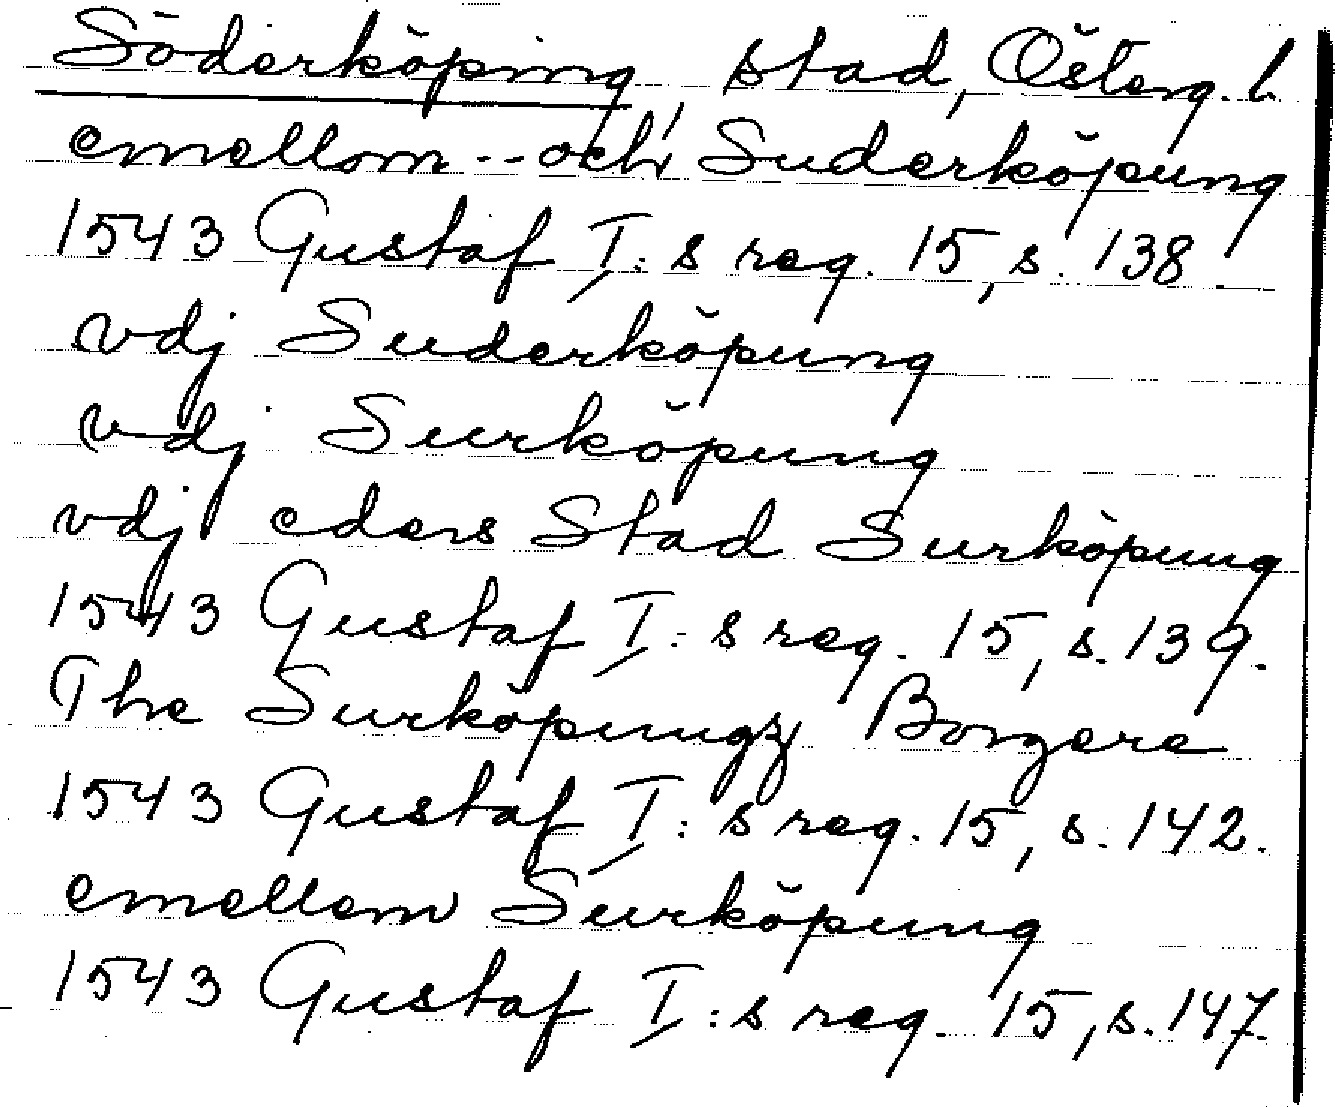 Söderköping, stad, Österg. l.
emellom -- och Suderköpung
1543 Gustaf I:s reg. 15, s. 138
vdj Suderköpung
vdj Surköpung
vdj eders Stad Surköpung
1543 Gustaf I:s reg. 15, s. 139.
The Surköpungz Borgere
1543 Gustaf I:s reg. 15, s. 142.
emellom Surköpung
1543 Gustaf I:s reg. 15, s. 147